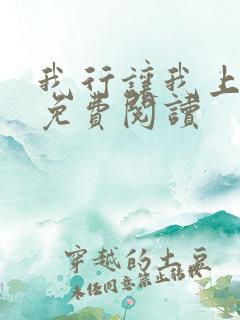 我行讓我上
免費閱讀
穿越的土豆
未任同意禁止轉載